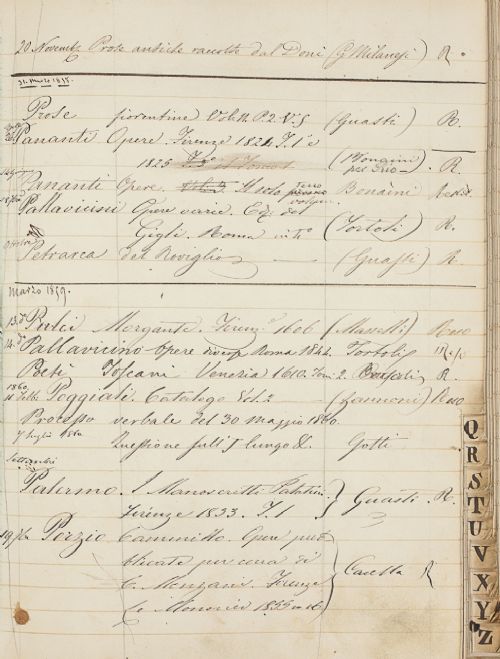 20. Novemb. Prose antiche raccolte dal Doni (G Milanesi) R.
31. Marzo 1858.
Prose fiorentine Vol. P. 2. V. 5 (Guasti) R.
Pananti Opere. Firenze 1824 T. 1°
1825 (Bonaini) R.
Pananti Opere Il solo terzo volume Bonaini
Pallavicini Opere varie. Ediz. del
Gigli. Roma (Tortoli) R.
Ottobre
Petrarca del Roviglio (Guasti) R
Marzo 1859.
13. d° Pulci Morgante. Firenze 1606 (Masselli) R
14. d° Pallavicino opere diverse Roma 1844. Tortoli R.
Poeti Toscani Venezia 1610. Tom. 2. R.
1860
11 Febb. Poggiali. Catalogo Vol. 2 (Zannoni)
Processo verbale del 30 maggio 1860.
7 luglio 1860 Quessione sull' Gotti
Settembre
Palermo. I Manoscritti Palatini
Firenze 1853. T. 1 Guasti. R.
19 Porzio Cammillo. Opere pub
blicate per cura di
C. Monzani. Firenze Casella R
Le Monnier 1855 in 16
Q
R
S
T
U
V
X
Y
Z